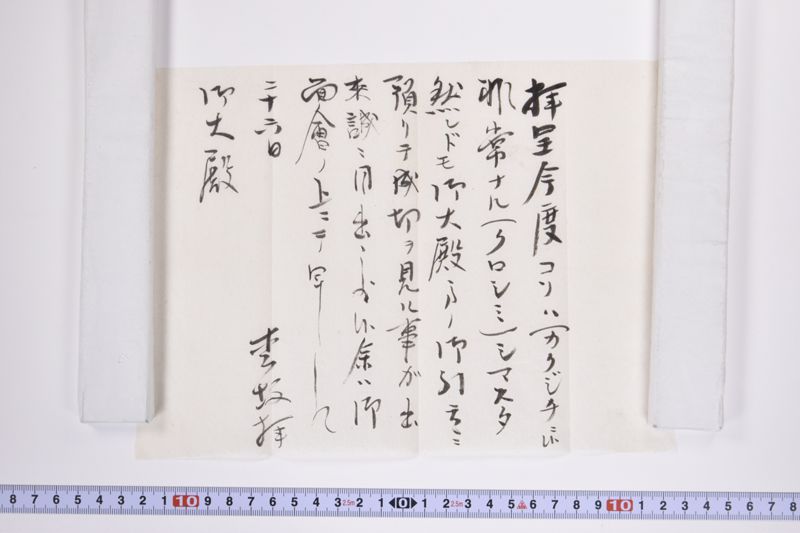 拝呈今度コソハ(カクジチニ
非常ナル(クロシミ)シマスタ
然レドモ御大殿ノ御引立ニ
預リテ成功ヲ見ル事ガ出
来誠ニ目出余ハ御
面會ノ上ニテ早
二十六日
拝
御大殿
8 7 6 5 4 3 2 1 10 9 8 7 6 5 4 3 2.5m 2 1 0 1 2 2.5m 3 4 5 6 7 8 9 10 1 2 3 4 5 6 7 8